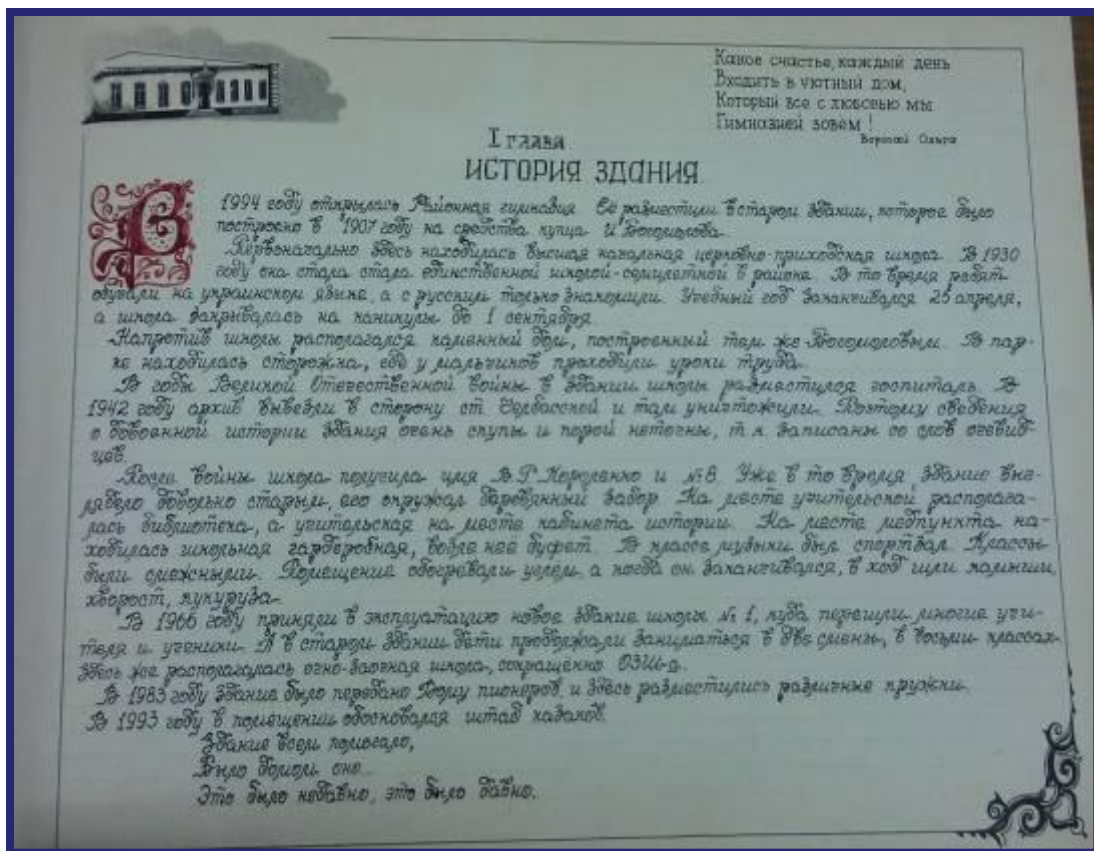 Какое счастье, каждый день
Входить в уютный дом,
Который все с любовью мы
Гимназией зовем!
Ольга
I глава
ИСТОРИЯ ЗДАНИЯ
В 1994 году открылась Районная гимназия. Её разместили в старом здании, которое было
построено в 1907 году на средства купца И. Богомолова.
Первоначально здесь находилась высшая начальная церковно-приходская школа. В 1930
году она стала стала единственной школой-семилеткой в районе. В то время ребят
обучали на украинском языке, а с русским только знакомили. Учебный год заканчивался 25 апреля,
а школа закрывалась на каникулы до 1 сентября.
Напротив школы располагался каменный дом, построенный тем же Богомоловым. В пар-
ке находилась сторожка, где у мальчиков проходили уроки труда.
В годы Великой Отечественной войны в здании школы разместился госпиталь. В
1942 году архив вывезли в сторону ст. Челбасской и там уничтожили. Поэтому сведения
о довоенной истории здания очень скупы и порой неточны, т.к. записаны со слов очевид-
цев.
После войны школа получила имя В.Г. Короленко и №8. Уже в то время, здание выг-
лядело довольно старым, его окружал деревянный забор. На месте учительской располага-
лась библиотека, а учительская на месте кабинета истории. На месте медпункта на-
ходилась школьная гардеробная, возле неё буфет. В классе музыки был спортзал. Классы
были смежными. Помещение обогревали углем, а когда он заканчивался, в ход шли камыши,
хворост, кукуруза.
В 1966 году приняли в эксплуатацию новое здание школы № 1, куда перешли многие учи-
теля и ученики. А в старом здании дети продолжали заниматься в две смены, в восьми классах.
Здесь же располагалась очно-заочная школа, сокращённо ОЗШ-а.
В 1983 году здание было передано Дому пионеров и здесь разместились различные кружки.
В 1993 году в помещении обосновался штаб казаков.
Здание всем помогало,
Было домом оно...
Это было недавно, это было давно.